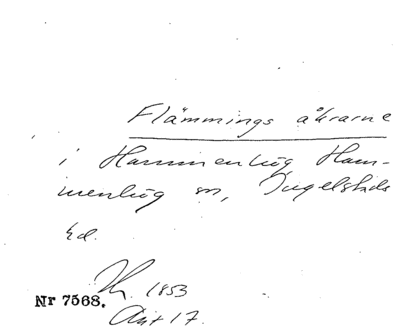 Flämmings åkrarne
i Hammenhög Ham-
menhög sn, Ingelstads
hd.
Th. 1853
Akt 17.
Nr 7568.